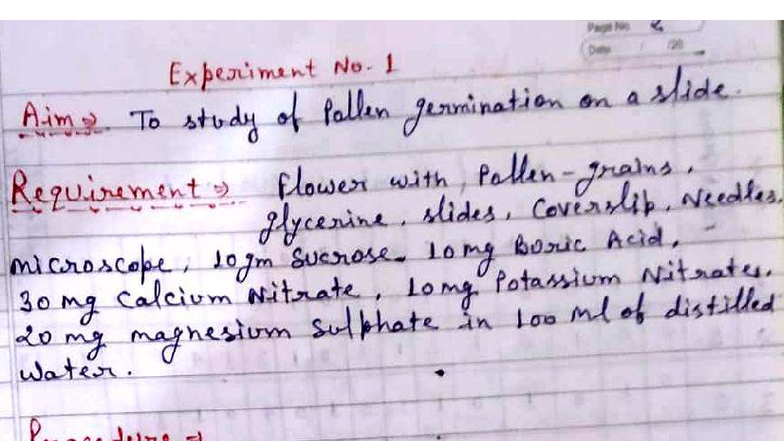 Page No.
Date / /20
Experiment No. 1
Aim⇒ To study of Pallen germination on a slide.
Requirement⇒ flower with, Pallen-grains,
glycerine, slides, Coverslip, Needles,
microscope, 10gm Sucrose, 10mg Boric Acid,
30 mg Calcium Nitrate, 10mg Potassium Nitrates,
20 mg magnesium Sulphate in 100 ml of distilled
Water.